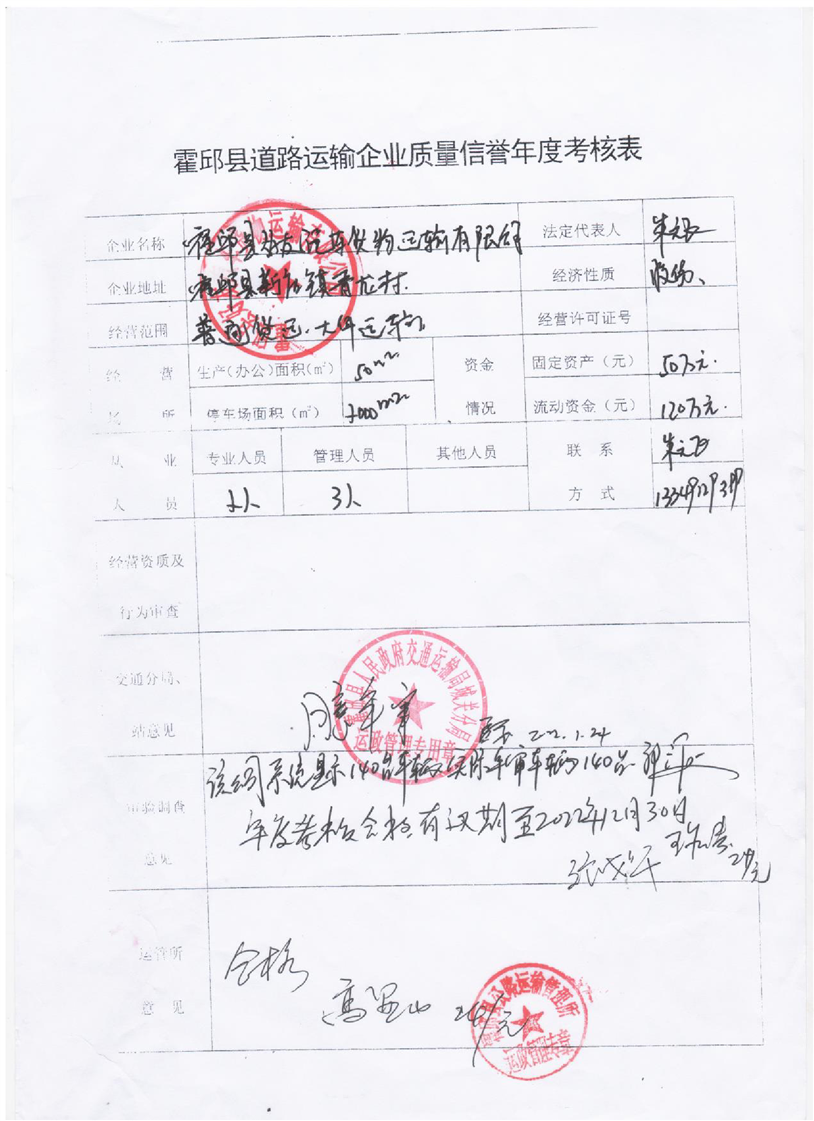 霍邱县道路运输企业质量信誉年度考核表
企业名称 霍邱县 友汽车货物运输有限公司 法定代表人 朱元飞
企业地址 霍邱县新 镇 村 经济性质
经营范围 普通货运、大件运输 经营许可证号
经 营 生产(办公)面积(㎡) 50m² 资金 固定资产（元） 50万元.
场 所 停车场面积（㎡） m² 情况 流动资金（元） 120万元.
从 业 专业人员 管理人员 其他人员 联 系 朱元飞
人 员 人 3人 方 式
经营资质及
行为审查
交通分局、
站意见 同意年审 2022.1.24
霍邱县人民政府交通运输局城关分局
运政管理专用章
该公司系统显示140台车辆,实际年审车辆140台.
审验调查
年度考核合格有效期至2022年12月30日
意见 24/元
运管所 合格
意 见 24/元
霍邱县公路运输管理所
运政管理专章